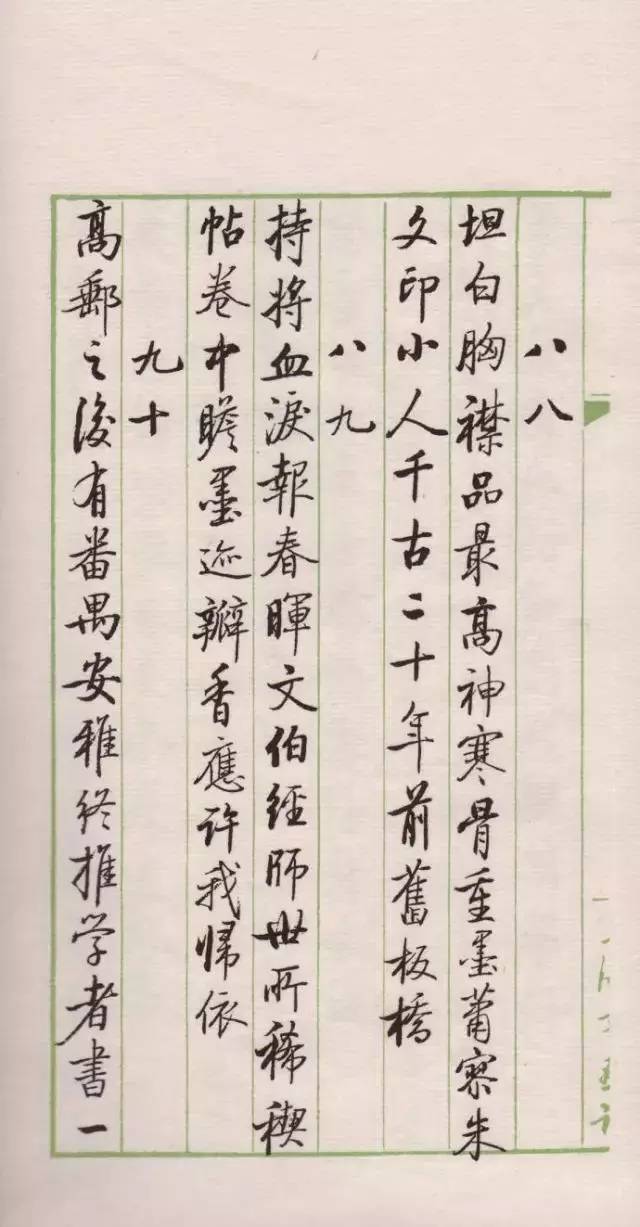 八八
坦白胸襟品最高神寒骨重墨萧寥朱
文印小人千古二十年前舊板橋
八九
持將血淚報春暉文伯經師世所稀禊
帖卷中瞻墨迹瓣香應許我归依
九十
高郵之後有番禺安雅终推学者書一